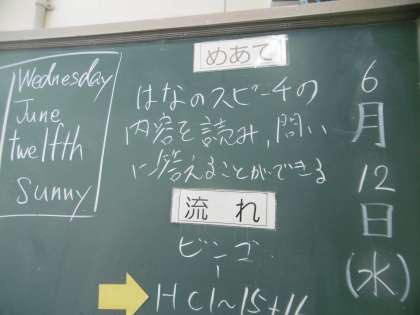 Wednesday
June
twelfth
sunny
めあて
はなのスピーチの
内容を読み,問い
に答えることができる
流れ
ビンゴー
HC1~15+16
6月12日(水)